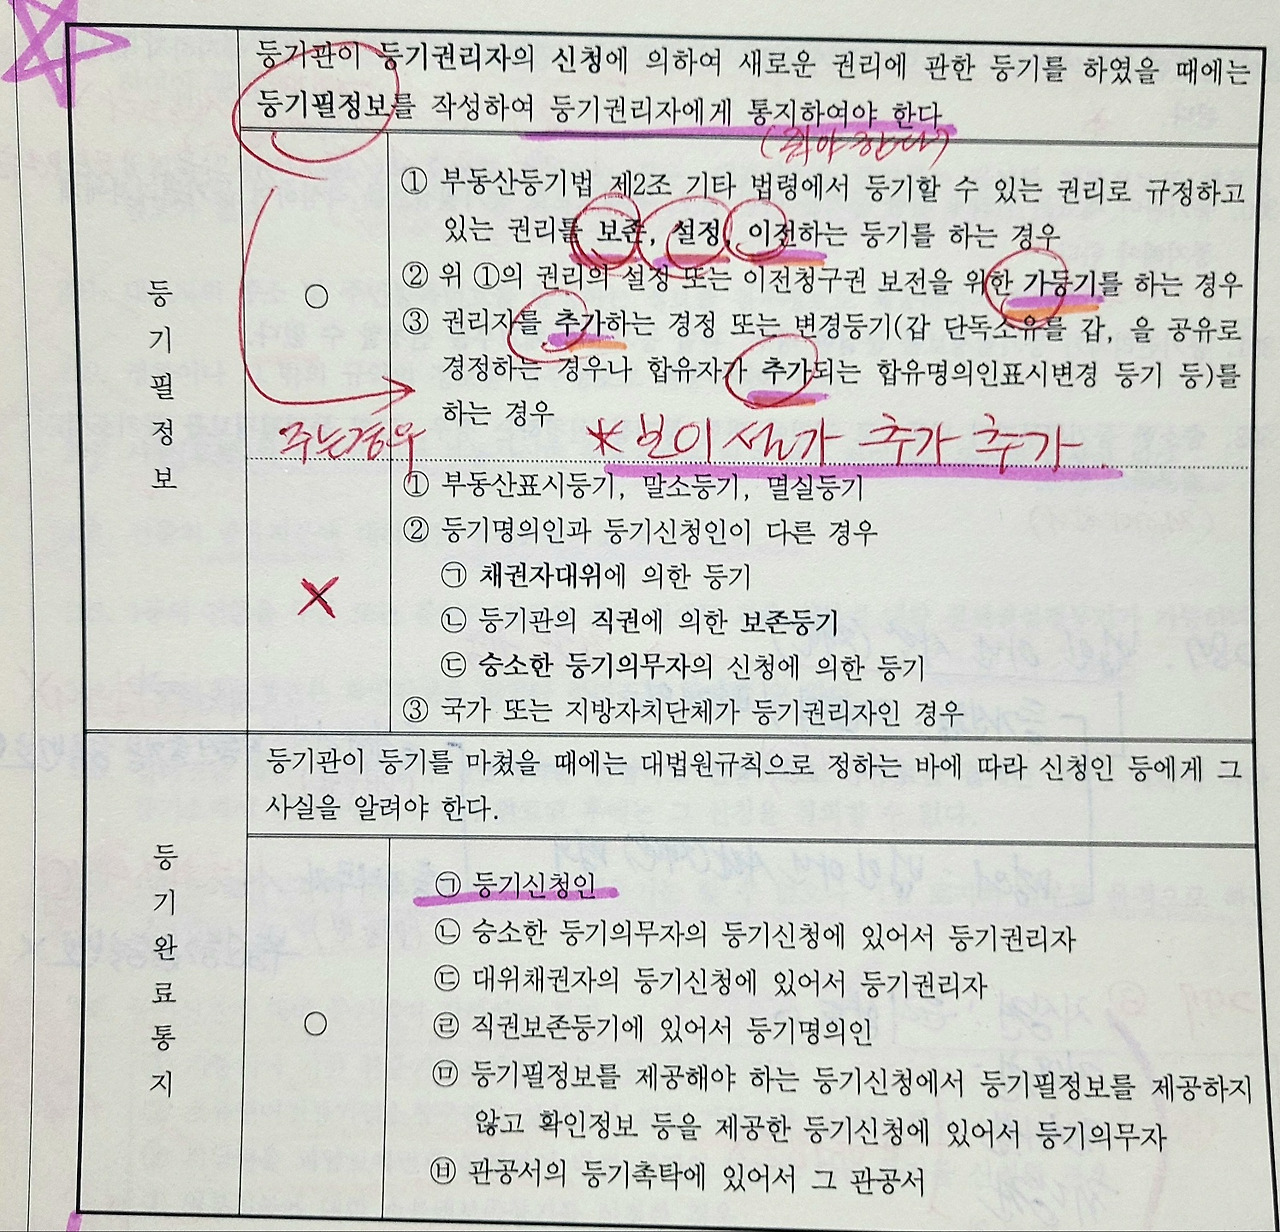 등기관이 등기권리자의 신청에 의하여 새로운 권리에 관한 등기를 하였을 때에는
등기필정보를 작성하여 등기권리자에게 통지하여야 한다
등기필정보
○
① 부동산등기법 제2조 기타 법령에서 등기할 수 있는 권리로 규정하고
있는 권리를 보존, 설정, 이전하는 등기를 하는 경우
② 위 ①의 권리의 설정 또는 이전청구권 보전을 위한 가등기를 하는 경우
③ 권리자를 추가하는 경정 또는 변경등기(갑 단독소유를 갑, 을 공유로
경정하는 경우나 합유자가 추가되는 합유명의인표시변경 등기 등)를
하는 경우
주는경우
* 보이설가 추가 추가
×
① 부동산표시등기, 말소등기, 멸실등기
② 등기명의인과 등기신청인이 다른 경우
㉠ 채권자대위에 의한 등기
㉡ 등기관의 직권에 의한 보존등기
㉢ 승소한 등기의무자의 신청에 의한 등기
③ 국가 또는 지방자치단체가 등기권리자인 경우
등기관이 등기를 마쳤을 때에는 대법원규칙으로 정하는 바에 따라 신청인 등에게 그
사실을 알려야 한다.
등기완료통지
○
㉠ 등기신청인
㉡ 승소한 등기의무자의 등기신청에 있어서 등기권리자
㉢ 대위채권자의 등기신청에 있어서 등기권리자
㉣ 직권보존등기에 있어서 등기명의인
㉤ 등기필정보를 제공해야 하는 등기신청에서 등기필정보를 제공하지
않고 확인정보 등을 제공한 등기신청에 있어서 등기의무자
㉥ 관공서의 등기촉탁에 있어서 그 관공서